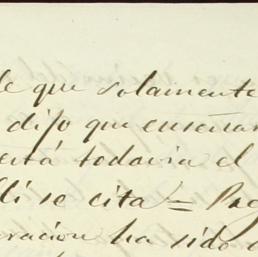 de que solamente
dijo que enseñar
está todavia el
lli se cita = Pag
eracion ha sido